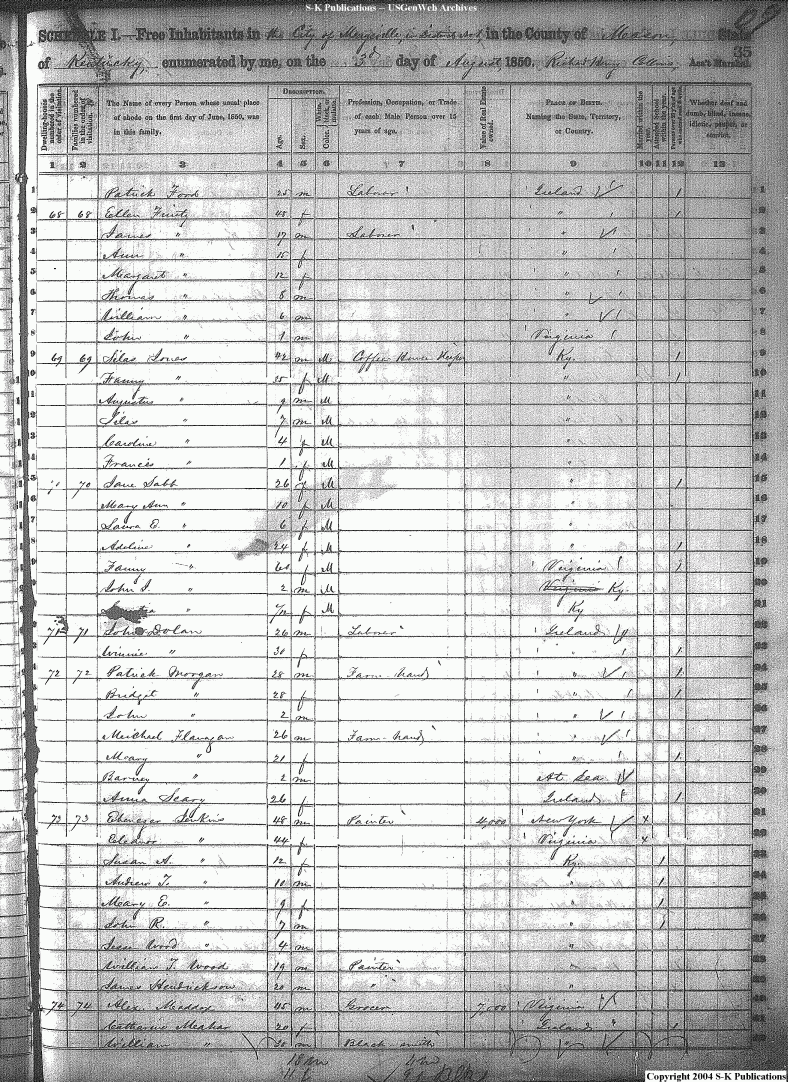 S-K Publications -- USGenWeb Archives
SCHEDULE I.—Free Inhabitants in the City of Maysville, in the County of Mason, State
35
of Kentucky, enumerated by me, on the 3d day of August, 1850. Richard Henry Collins Ass't Marshal.
Dwelling-houses numbered in the order of visitation. Families numbered in the order of visitation. The Name of every Person whose usual place of abode on the first day of June, 1850, was in this family. DESCRIPTION. Age. Sex. Color. Profession, Occupation, or Trade of each Male Person over 15 years of age. Value of Real Estate owned. PLACE OF BIRTH. Naming the State, Territory, or Country. Married within the year. Attended School within the year. Whether deaf and dumb, blind, insane, idiotic, pauper, or convict.
1 2 3 4 5 6 7 8 9 10 11 12 13
1 Patrick Ford 25 m Laborer Ireland 1 1
2 68 68 Ellen 45 f " 1 2
3 James " 17 m Laborer " 3
4 Ann " 15 f " 4
5 Margaret " 12 f " 5
6 Thomas " 8 m " 6
7 William " 6 m " 7
8 John " 1 m Virginia 8
9 69 69 Silas Jones 42 m M Coffee House Keeper Ky. 1 9
10 Fanny " 35 f M " 1 10
11 Augustus " 9 m M " 11
12 Silas " 7 m M " 12
13 Caroline " 4 f M " 13
14 Francis " 1 f M " 14
70 Jane 26 f M " 1 15
Mary Ann " 10 f M " 16
Laura E. " 6 f M " 17
Adeline " 24 f M " 1 18
Fanny " 60 f M Virginia 1 19
John " 2 m M Ky. 20
" f M Ky 21
71 71 John Dolan 26 m Laborer Ireland 22
Winnie " 30 f " 1 23
72 72 Patrick Morgan 28 m Farm-hand " 1 24
Bridget " 28 f " 1 25
John " 2 m " 26
Michael Flanagan 26 m Farm-hand " 27
Mary " 21 f " 1 28
Barney " 2 m At Sea 29
Anna 26 f Ireland 1
73 73 Ebenezer Jenkins 48 m Painter 4,000 New York x
Eleanor " 44 f Virginia x
Susan A. " 12 f Ky. 1
Andrew T. " 10 m " 1
Mary E. " 9 f " 1
John R. " 7 m " 1
Jesse Wood " 4 m "
William T. Wood 19 m Painter "
James Hendrickson 20 m " "
74 74 Alex. Maddox 45 m Grocer 7,000 Virginia
Catharine 20 f Ireland 1
William " 30 m Black smith "
Copyright 2004 S-K Publications